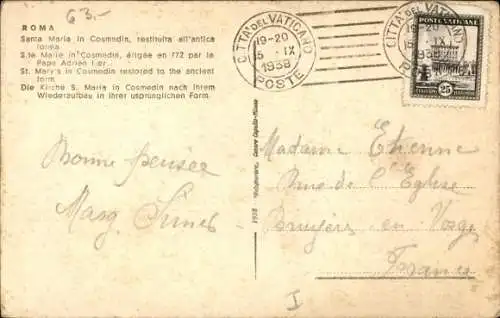 63.-
ROMA
Santa Maria in Cosmedin, restituita all'antica
forma
S.te Marie in Cosmedin, érigée en 772 par le
Pape Adrien I er...
St. Mary's in Cosmedin restored to the ancient
form
Die Kirche S. Maria in Cosmedin nach ihrem
Wiederaufbau in ihrer ursprünglichen Form
CITTÀ DEL VATICANO
19-20
IX
1938
POSTE
CITTÀ DEL VATICANO
19-20
1938
POSTE VATICANE
25
Bonne pensée
Marg
1938
Madame Etienne
Rue de l'Eglise
Bruyères en Vosges
France
I